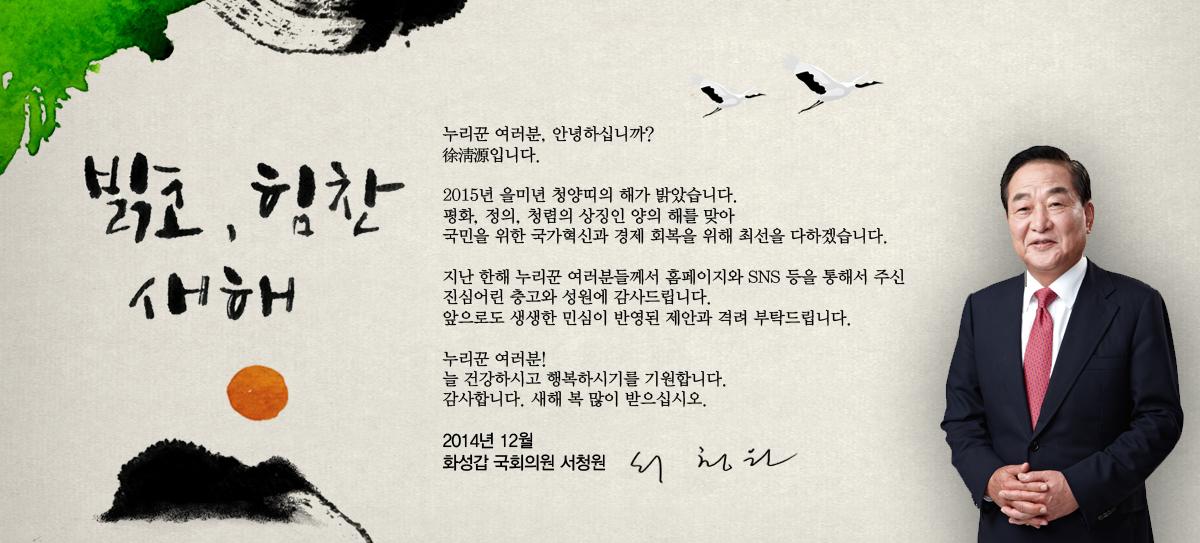 밝고, 힘찬
새해
누리꾼 여러분, 안녕하십니까?
徐淸源입니다.
2015년 을미년 청양띠의 해가 밝았습니다.
평화, 정의, 청렴의 상징인 양의 해를 맞아
국민을 위한 국가혁신과 경제 회복을 위해 최선을 다하겠습니다.
지난 한해 누리꾼 여러분들께서 홈페이지와 SNS 등을 통해서 주신
진심어린 충고와 성원에 감사드립니다.
앞으로도 생생한 민심이 반영된 제안과 격려 부탁드립니다.
누리꾼 여러분!
늘 건강하시고 행복하시기를 기원합니다.
감사합니다. 새해 복 많이 받으십시오.
2014년 12월
화성갑 국회의원 서청원 서청원